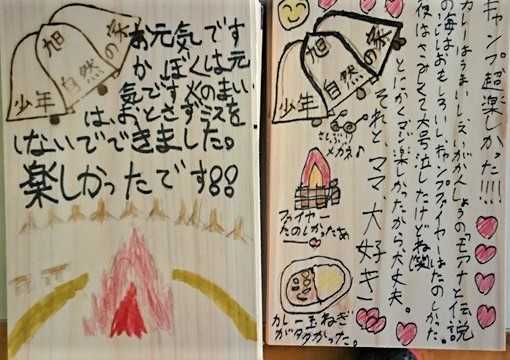 旭
少年
自然
の森
お元気です
か ぼくは元
気です火のまい
は、おとさずミスを
しないでできました。
楽しかったです!!
キャンプ超楽しかった!!!!
カレーはうまいし、えいがかんしょうの「モアナと伝説
の海」はおもしろいし、キャンプファイヤーはたのしかった。
夜はさびしくて大号泣したけどね(笑)
とにかくマジ楽しかったから大丈夫。
それと、ママ、大好き!
旭
少年
自然
の森
メガネ♪
ファイヤー
たのしかったぁ
カレー玉ねぎ
が多かった。